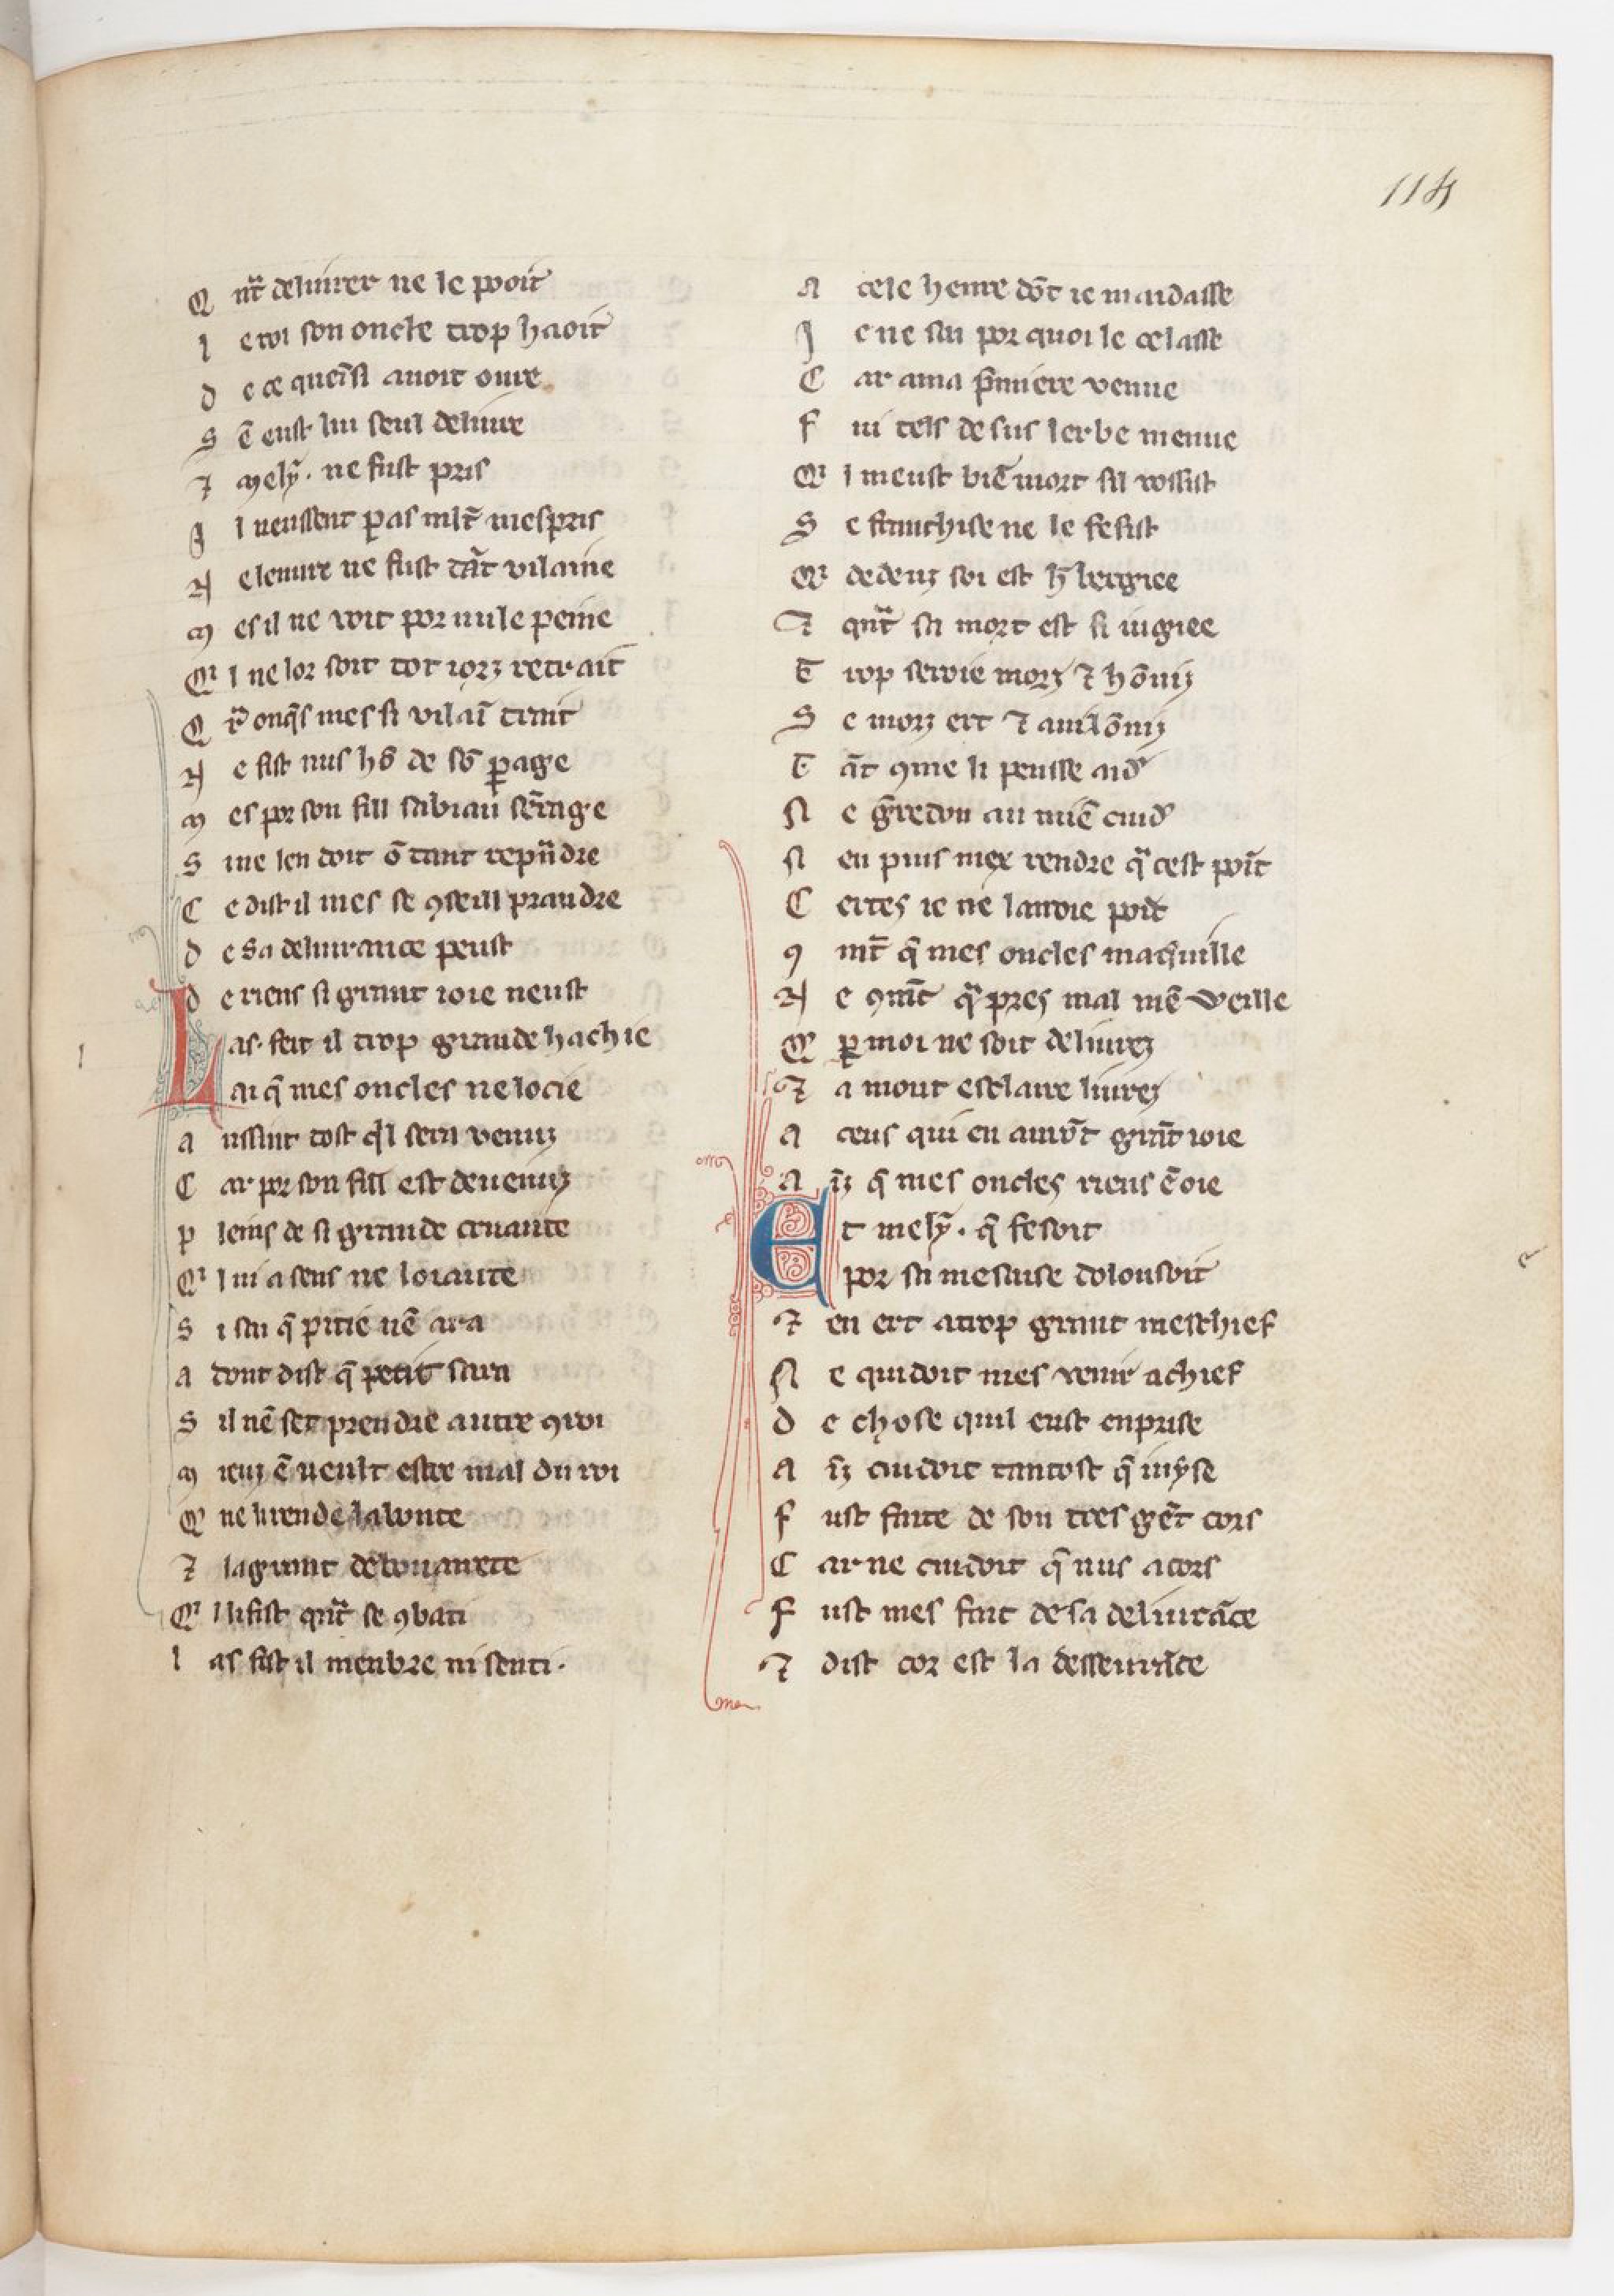 114
Q nt̃ deliurer ne le pooit
l e roi son oncle trop haoit
d e ce queĩsi auoit oure
S ẽ eust lui seul deliure
⁊ mely̾. ne fust pris
J l neussent pas mlt̃ mespris
N e leuure ne fust tãt vilaine
m es il ne voit por nule peine
Q̾ l ne lor soit tot iorz retrait
Q r̃ onq̃s mes si vilaĩ trait
N e fist nus hõ de sõ ꝑage
m es por son fill sabiau sẽrage
S iue len doit õ tant repñdre
C e dist il mes se ꝯseill prandre
d e sa deliurance peust
d e riens si grant ioie neust
Las. fait il trop grande hachie
ai q̃ mes oncles ne locie
a ussint tost q̾l sera venuz
C ar por son fill est deuenuz
p leins de si grande cruaute
Q̾ l ni a sens ne loiaute
S i sai q̃ pitie nẽ ara
a dont dist q̃ petit sara
S il nẽ set prendre autre ꝯroi
m ieuz ẽ ueult estre mal du roi
Q̾ ne li rende la bonte
⁊ la grant debonairete
Q̾ l li fist qñt se ꝯbati
l as fist il menbre ni senti.
A cele heure dõt ie maidasse
J e ne sai por quoi le celasse
C ar a ma p̃miere venue
F ui tels desus lerbe menue
Q̾ l meust biẽ mort sil vossist
S e franchise ne le fesist
Q̾ dedenz soi est h̃bergiee
⁊ qñt sa mort est si iugiee
T rop seroie morz ⁊ hõniz
S e morz ert ⁊ auilõniz
T ãt ꝯme li peusse aid̾
N e g̃redon au miẽ cuid̾
N en puis mex rendre q̃ cest poĩt
C ertes ie ne lairoie poĩt
ꝯ mt̃ q̃ mes oncles mac̾uille
N e ꝯmt̃ q̃ pres mal mẽ veille
Q̾ ꝑ moi ne soit deliurez
⁊ a mout esclaire liurez
A ceus qui en aurõt grãt ioie
A ñz q̃ mes oncles riens ẽ oie
Et mely̾. q̃ fesoit
por sa mesaise dolousoit
⁊ en ert a trop grant meschief
N e quidoit mes venir a chief
d e chose quil eust enprise
A ñz cuidoit tantost q̃ iuy̾se
F ust faite de son tres gẽt cors
C ar ne cuidoit q̃ nus acors
F ust mes fait de sa deliurãce
⁊ dist cor est la desseurãce